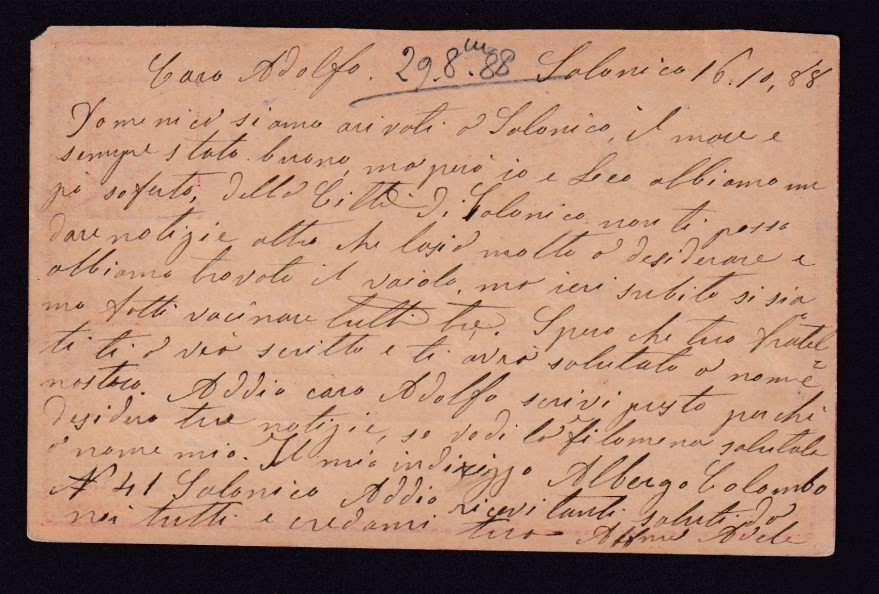 Caro Adolfo. 29.8.88 Salonico 16.10.88
Domenica siamo arivati a Salonico, il mare e
sempre stato buono, ma però io e Leo abbiamo un
pò soferto, della Città di Salonico non ti posso
dare notizie altro che lasia molto a desiderare e
abbiamo trovato il vaiolo, ma ieri subito si sia
mo fatti vacinare tutti tre. Spero che tuo fratel=
ti à scritto e ti avrà salutato a nome
nostro. Addio caro Adolfo scrivi presto perchè
desidero tue notizie, se vedi la Filomena salutala
a nome mio. Il mio indirizzo Albergo Colombo
N 41 Salonico Addio ricevi tanti saluti da
noi tutti e credami tua Adele